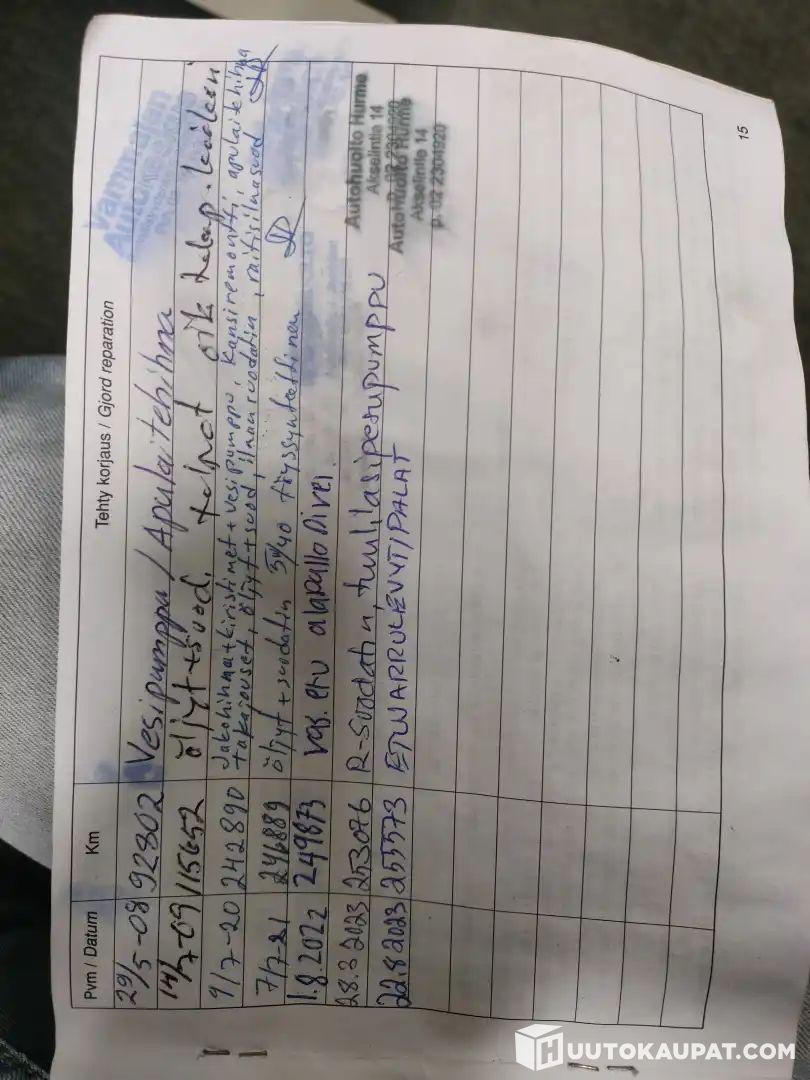 Pvm / Datum Km Tehty korjaus / Gjord reparation
29/5-08 92802 Vesipumppu / Apulaitehihna
14/7-09 115652 öljyt+suod.
9/7-20 242890 Jakohihna+kiristimet+vesipumppu, kansiremontti, apulaitehihna
takajouset, öljyt+suod, ilmansuodatin, raitisilmasuod
7/7-21 246889 öljyt+suodatin 5W40 täyssynteettinen
1.8.2022 249873 vas. etu alapallonivel
28.3.2023 253076 R-suodatin, tuulilasipesupumppu
Autohuolto Hurme
Akselintie 14
p. 02 2304920
22.8.2023 255573 ETUJARRULEVYT/PALAT
Autohuolto Hurme
Akselintie 14
p. 02 2304920
15
HUUTOKAUPAT.COM